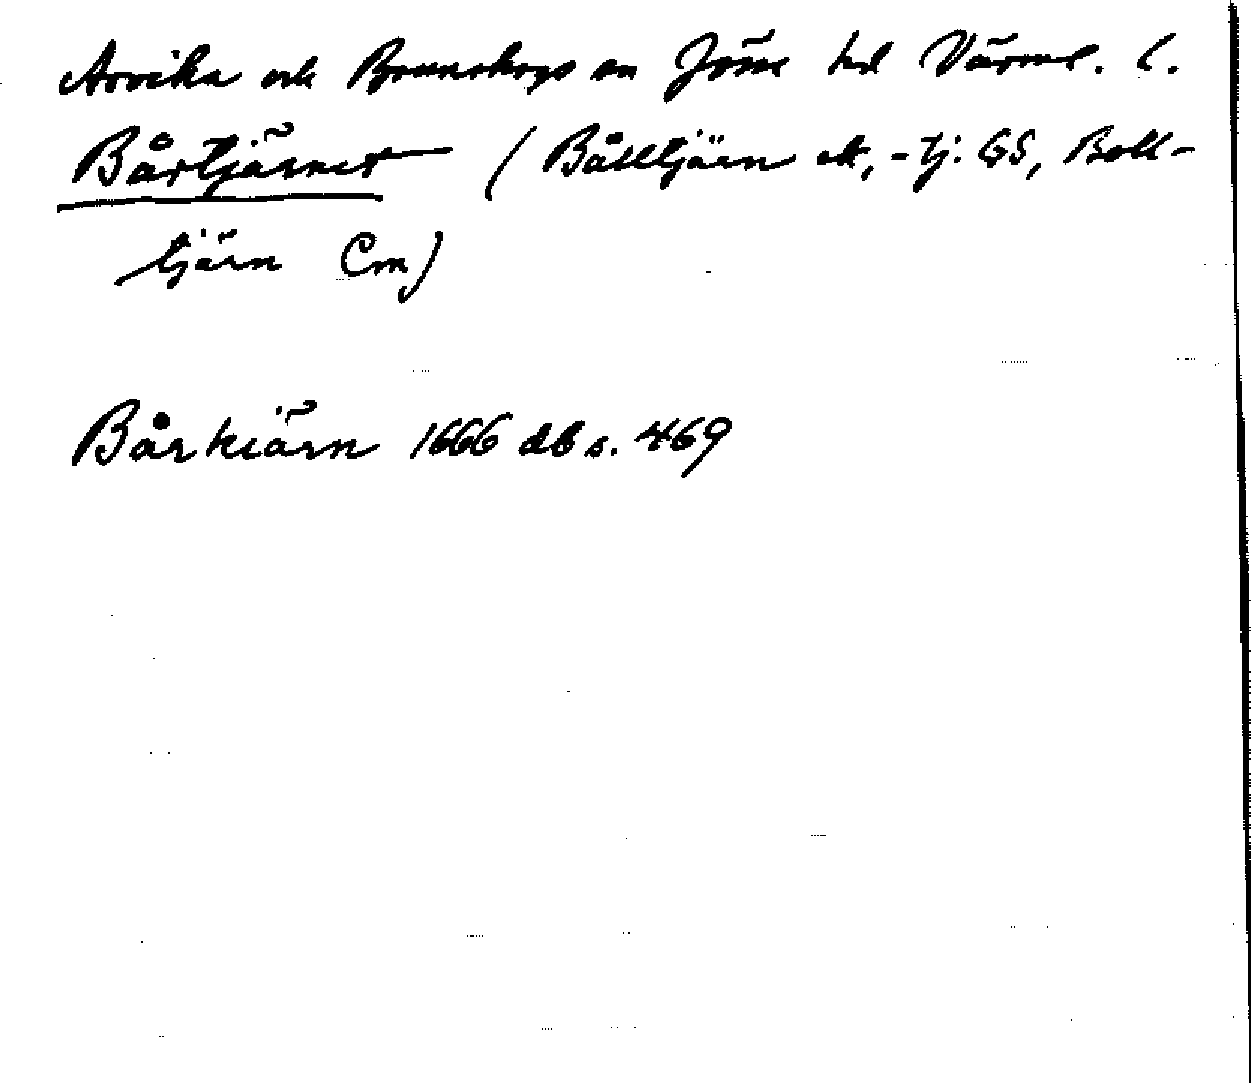 Arvika och Brunskogs sn Jösse hd Värml. l.
Bårtjärnet (Båttjärn ek, -tj. GS, Bott-
tjärn Cm)
Bårkiärn 1666 db s. 469